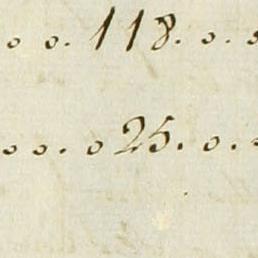 o o. 118. o. o
o o. o 25. o.